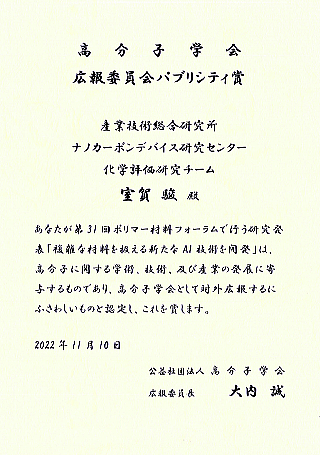 高分子学会
広報委員会パブリシティ賞
産業技術総合研究所
ナノカーボンデバイス研究センター
化学評価研究チーム
室賀 駿 殿
あなたが第31回ポリマー材料フォーラムで行う研究発
表「複雑な材料を扱える新たなAI技術を開発」は、
高分子に関する学術、技術、及び産業の発展に寄
与するものであり、高分子学会として対外広報するに
ふさわしいものと認定し、これを賞します。
2022年11月10日
公益社団法人 高分子学会
広報委員長 大内 誠